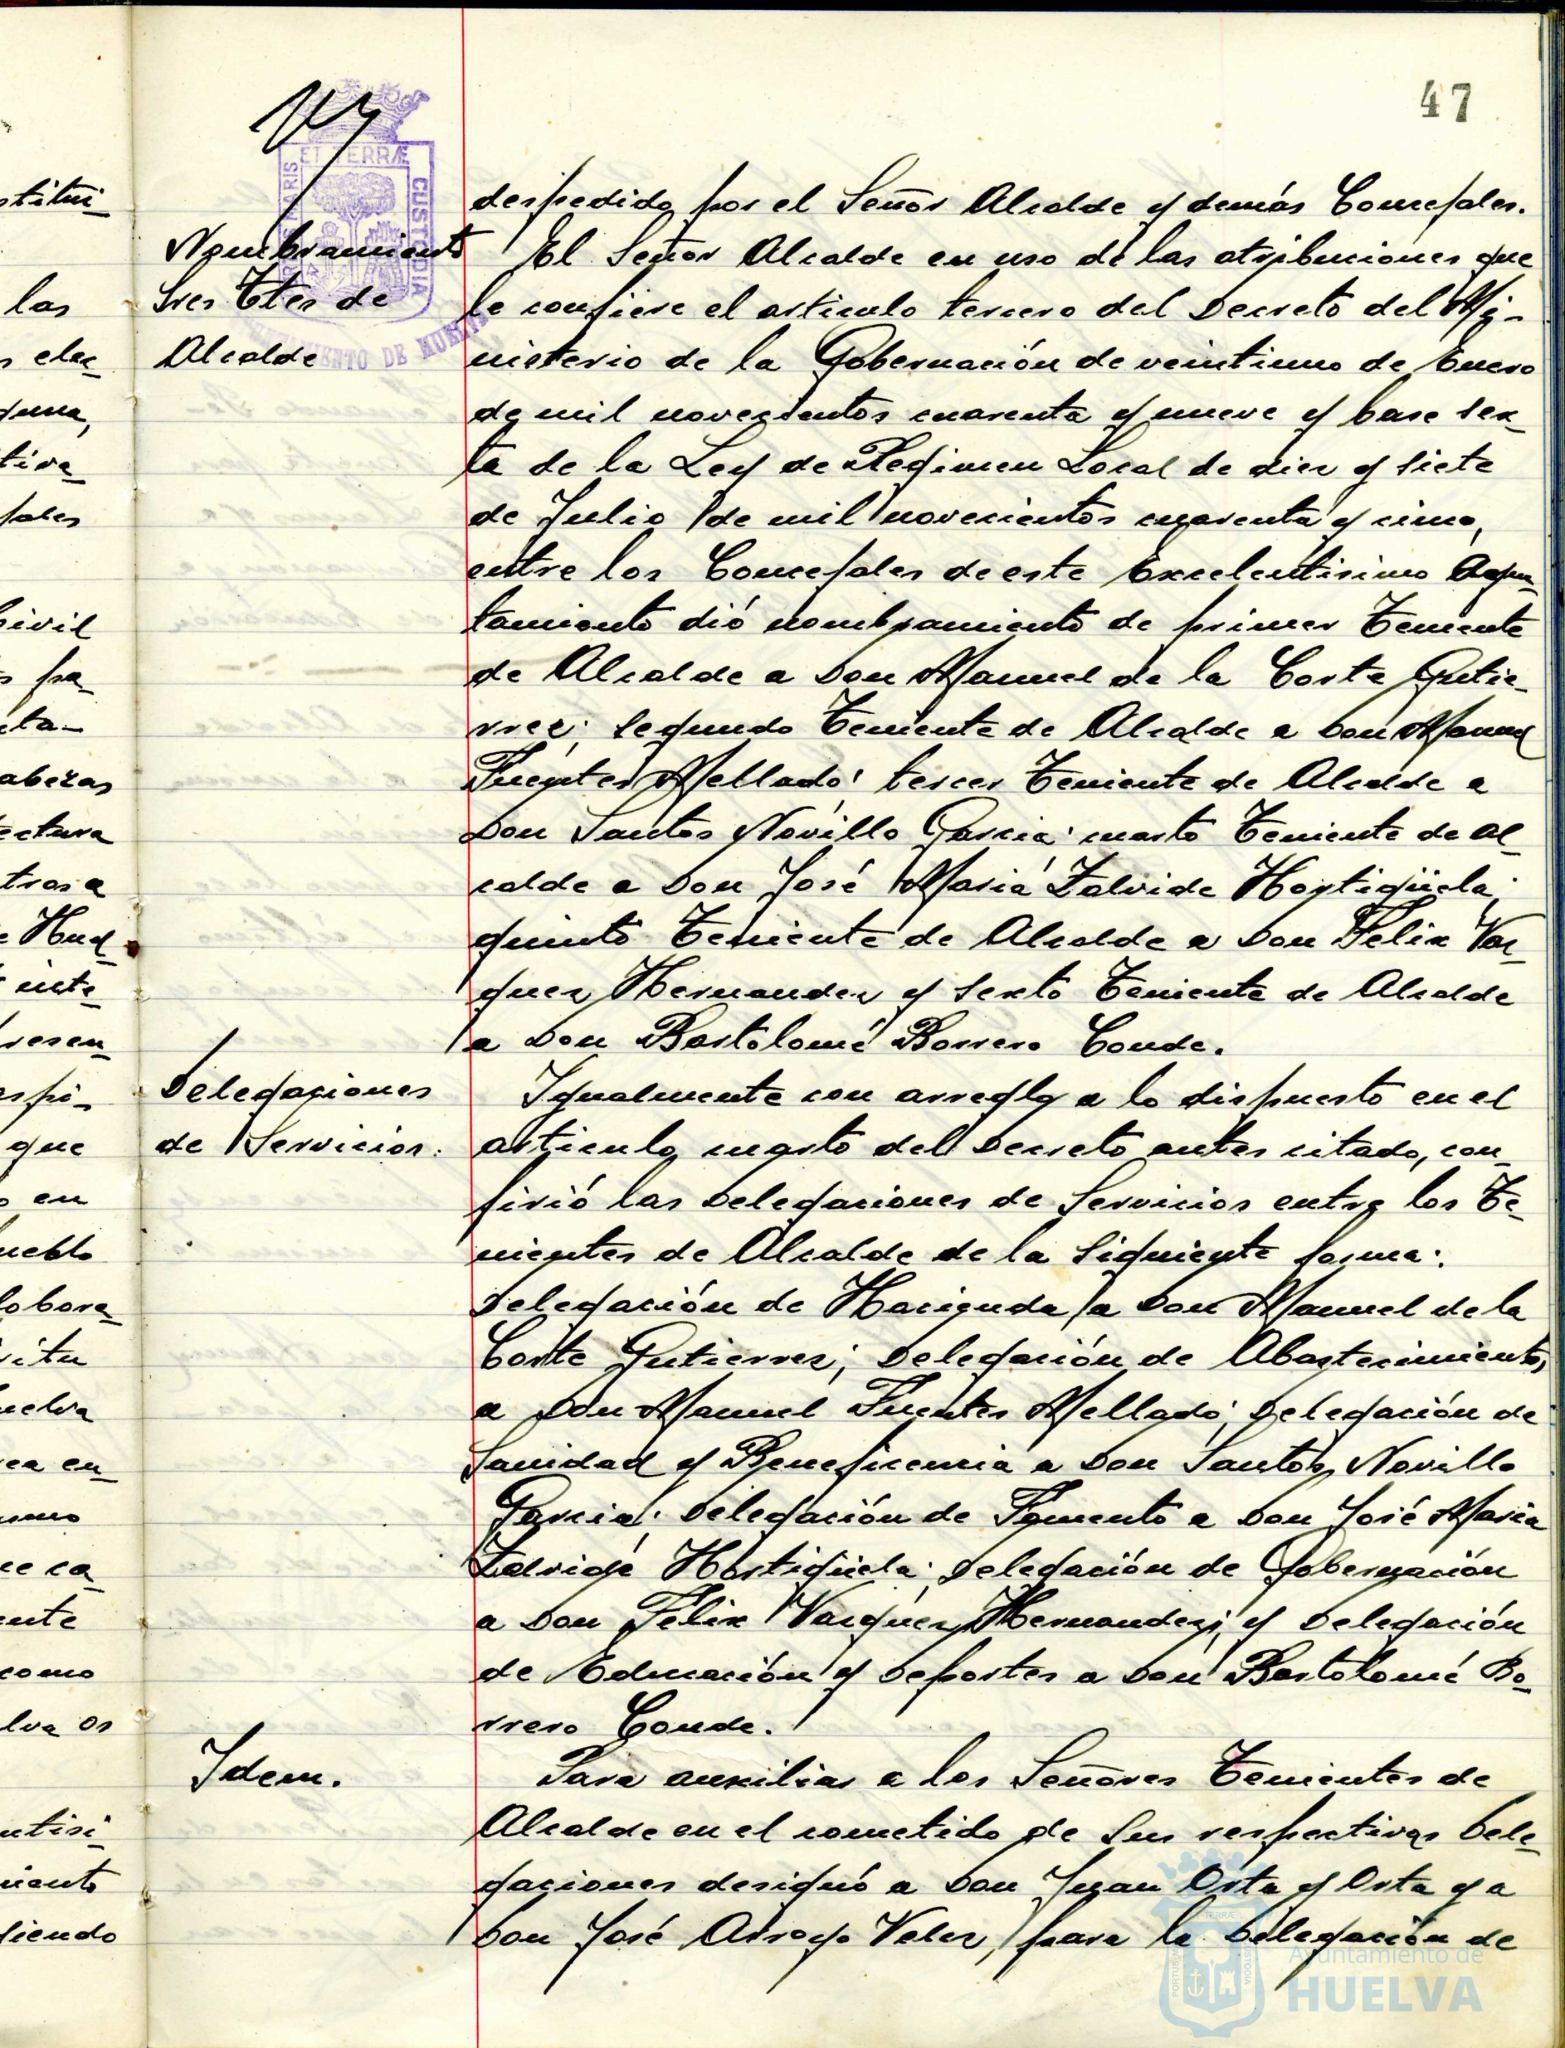 47
ET TERRÆ
CUSTODIA
AYUNTAMIENTO DE HUELVA
stitui-
las
s elec-
guna,
tiva-
jales
Civil
s pa-
cta-
abezas
ectura
tros a
e Huel-
inte-
resen-
espi-
que
o en
ueblo
labora-
ritu
uelva
ea en-
smo
ue ca-
ente
como
lva os
ntisi-
miento
diendo
despedido por el Señor Alcalde y demás Concejales.
Nombramiento
Sres Ttes de
Alcalde
El Señor Alcalde en uso de las atribuciones que
le confiere el articulo tercero del Decreto del Mi-
nisterio de la Gobernación de veintiuno de Enero
de mil novecientos cuarenta y nueve y base sex-
ta de la Ley de Regimen Local de diez y siete
de Julio de mil novecientos cuarenta y cinco,
entre los Concejales de este Excelentisimo Ayun-
tamiento dió nombramiento de primer Teniente
de Alcalde a Don Manuel de la Corte Gutie-
rrez; segundo Teniente de Alcalde a Don Manuel
Fuentes Mellado; tercer Teniente de Alcalde a
Don Santos Novillo Garcia; cuarto Teniente de Al-
calde a Don José Maria Zalvide Hortigüela;
quinto Teniente de Alcalde a Don Felix Vaz-
quez Hernandez y sexto Teniente de Alcalde
a Don Bartolomé Borrero Conde.
Delegaciones
de Servicios.
Igualmente con arreglo a lo dispuesto en el
articulo cuarto del Decreto antes citado, con-
firió las Delegaciones de Servicios entre los Te-
nientes de Alcalde de la siguiente forma:
Delegación de Hacienda, a Don Manuel de la
Corte Gutierrez; Delegación de Abastecimientos,
a Don Manuel Fuentes Mellado; Delegación de
Sanidad y Beneficencia a Don Santos Novillo
Garcia; Delegación de Fomento a Don José Maria
Zalvide Hortigüela; Delegación de Gobernación
a Don Felix Vazquez Hernandez; y Delegación
de Educación y Deportes a Don Bartolomé Bo-
rrero Conde.
Idem.
Para auxiliar a los Señores Tenientes de
Alcalde en el cometido de sus respectivas Dele-
gaciones designó a Don Juan Orta y Orta y a
Don José Arroyo Velez, para la Delegación de
Ayuntamiento de
HUELVA